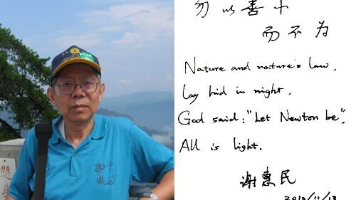 勿以善小
而不为
Nature and nature's law.
Lay hid in night.
God said: "Let Newton be".
All is light.
谢惠民
2010/11/13